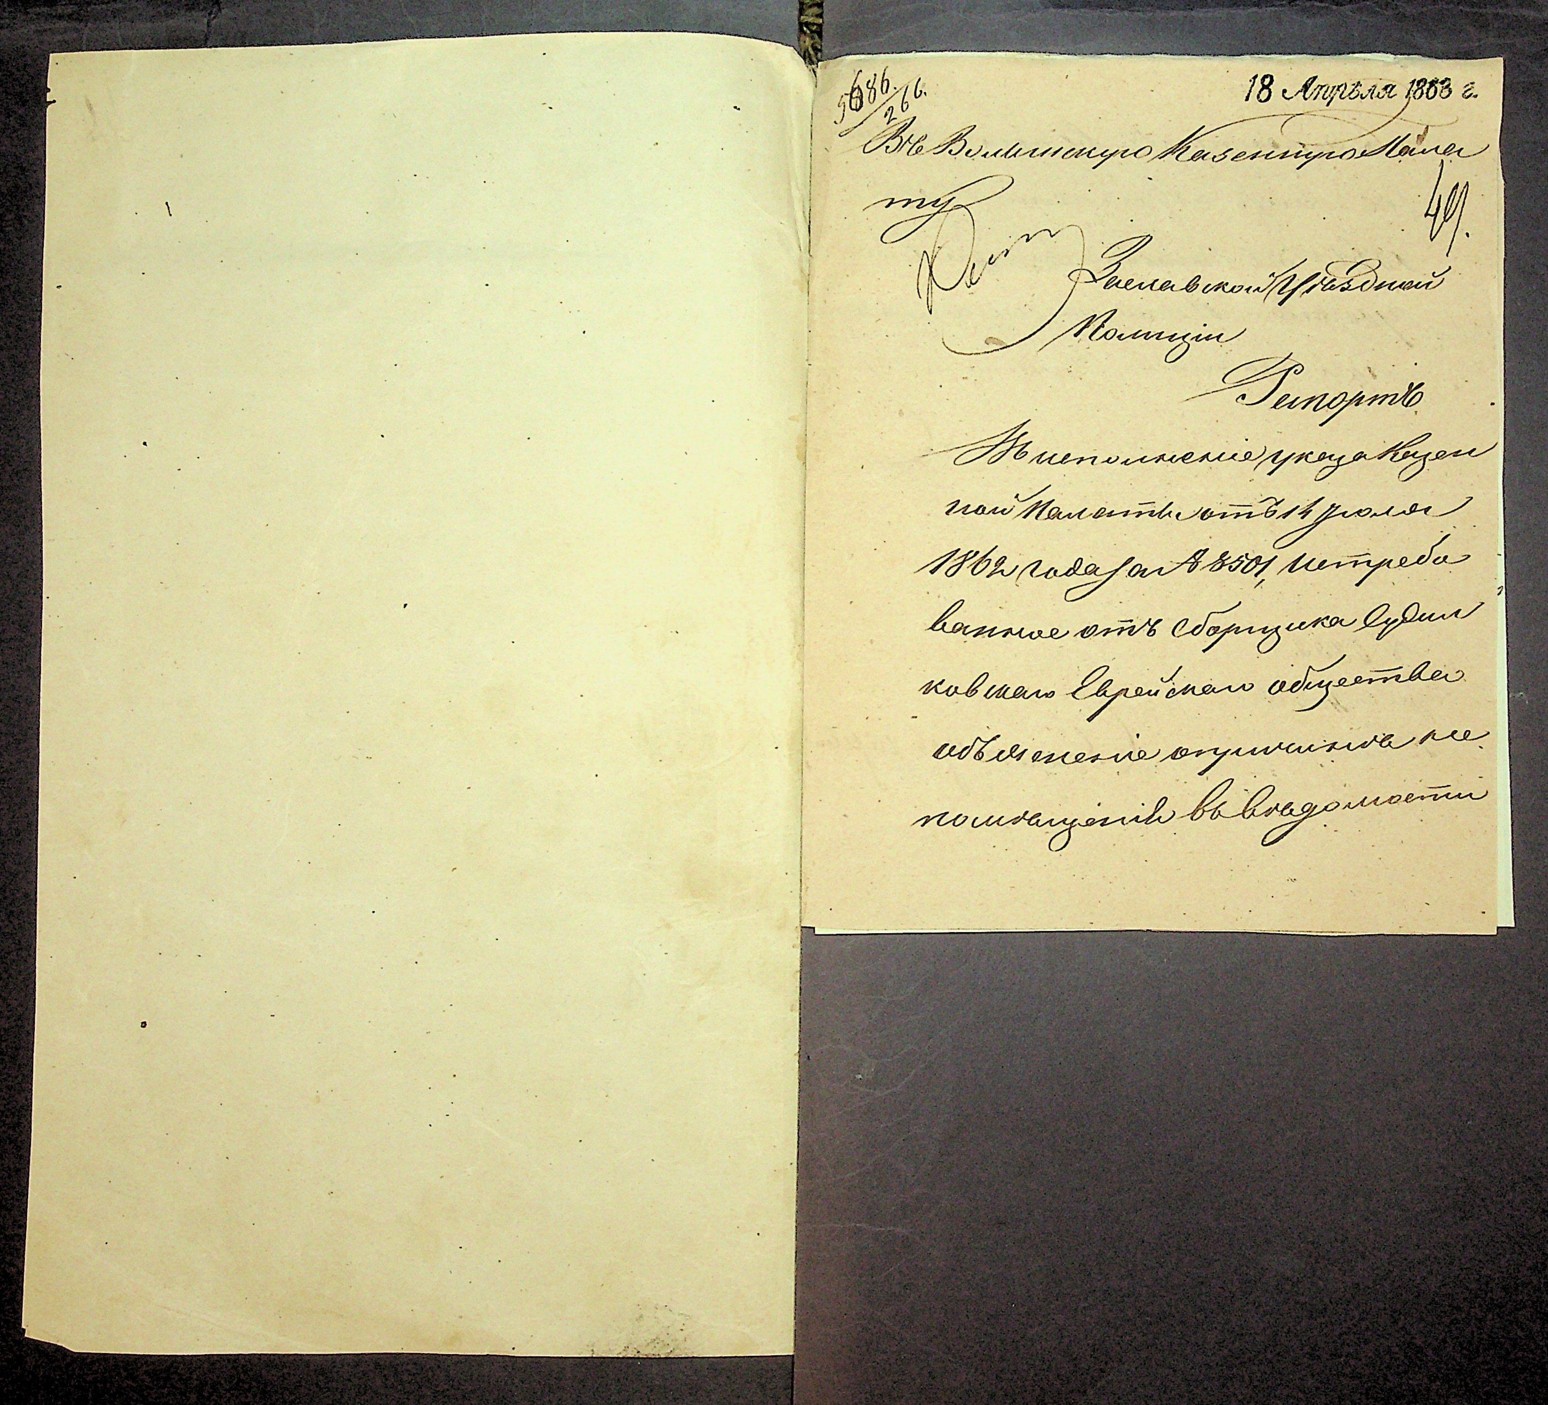 5686.
266.
18 Апрѣля 1863 г.
Въ Волынскую Казенную Пала
ту
49.
Заславской Уѣздной
Полиціи
Рапортъ
Въ исполненіе указа Казен
ной Палаты отъ 14 Іюля
1862 года за № 8501, истребо
ванное отъ Сборщика Судил
ковскаго Еврейскаго общества
объясненіе о причинѣ не
помѣщенія въ вѣдомости